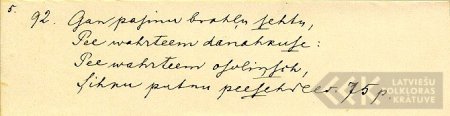 5.
92. Gan pasinu brahļu sehtu,
Pee wahrteem danahkuse:
Pee wahrteem osoliņsch,
Sihku putnu peesehdees. 75 p.
LATVIEŠU
FOLKLORAS
KRĀTUVE